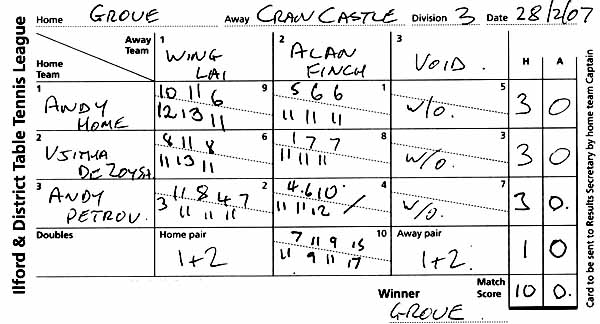 Home GROVE Away CRAN CASTLE Division 3 Date 28/2/07
Ilford & District Table Tennis League
Away Team
Home Team
1 WING LAI
2 ALAN FINCH
3 VOID.
H A
1 ANDY HOME
10 11 6 9
12 13 11
5 6 6 1
11 11 11
5
W/O.
3 0
2 DE ZOYSA
8 11 8 6
11 13 11
1 7 7 8
11 11 11
3
W/O.
3 0
3 ANDY PETROV.
11 8 4 7 2
3 11 11 11
4. 6 10. 4
11 11 12 /
7
W/O.
3 0.
Doubles
Home pair
1+2
7 11 9 15 10
11 9 11 17
Away pair
1+2.
1 0
Winner GROVE
Match Score 10 0.
Card to be sent to Results Secretary by home team Captain